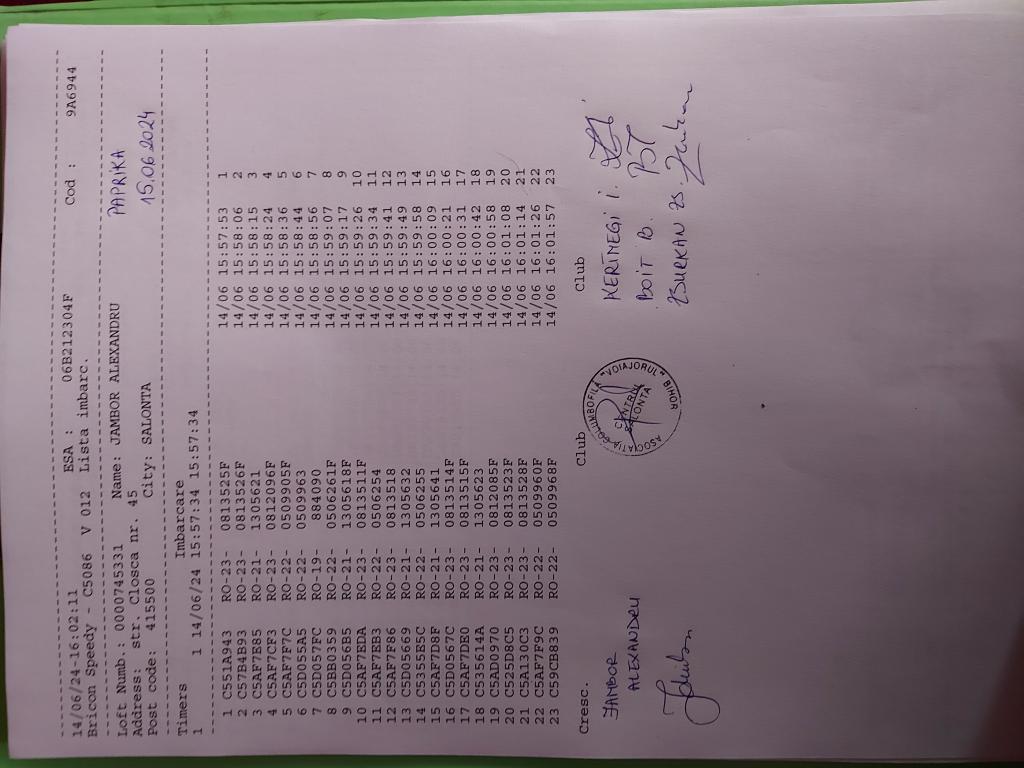 14/06/24-16:02:11 ESA : 06B212304F Cod : 9A6944
Bricon Speedy - C5086 V 012 Lista imbarc.
Loft Numb.: 0000745331 Name: JAMBOR ALEXANDRU PAPRIKA
Address: str. Closca nr. 45
Post code: 415500 City: SALONTA 15.06.2024
Timers Imbarcare
1 1 14/06/24 15:57:34 15:57:34
1 C551A943 RO-23- 0813525F 14/06 15:57:53 1
2 C57B4B93 RO-23- 0813526F 14/06 15:58:06 2
3 C5AF7E85 RO-21- 1305621 14/06 15:58:15 3
4 C5AF7CF3 RO-23- 0812096F 14/06 15:58:24 4
5 C5AF7F7C RO-22- 0509905F 14/06 15:58:36 5
6 C5D055A5 RO-22- 0509963 14/06 15:58:44 6
7 C5D057FC RO-19- 884090 14/06 15:58:56 7
8 C5BB0359 RO-22- 0506261F 14/06 15:59:07 8
9 C5D056B5 RO-21- 1305618F 14/06 15:59:17 9
10 C5AF7EDA RO-23- 0813511F 14/06 15:59:26 10
11 C5AF7EB3 RO-22- 0506254 14/06 15:59:34 11
12 C5AF7F86 RO-23- 0813518 14/06 15:59:41 12
13 C5D05669 RO-21- 1305632 14/06 15:59:49 13
14 C5355B5C RO-22- 0506255 14/06 15:59:58 14
15 C5AF7D8F RO-21- 1305641 14/06 16:00:09 15
16 C5D0567C RO-23- 0813514F 14/06 16:00:21 16
17 C5AF7DB0 RO-23- 0813515F 14/06 16:00:31 17
18 C535614A RO-21- 1305623 14/06 16:00:42 18
19 C5AD0970 RO-23- 0812085F 14/06 16:00:58 19
20 C525D8C5 RO-23- 0813523F 14/06 16:01:08 20
21 C5A130C3 RO-23- 0813528F 14/06 16:01:14 21
22 C5AF7F9C RO-22- 0509960F 14/06 16:01:26 22
23 C59CB839 RO-22- 0509968F 14/06 16:01:57 23
Cresc. Club Club
JAMBOR
ALEXANDRU
ASOCIATIA COLUMBOFILA "VOIAJORUL" BIHOR
CENTRUL
SALONTA
KERIMEGI I.
BOIT B.
ZSURKAN ZS.